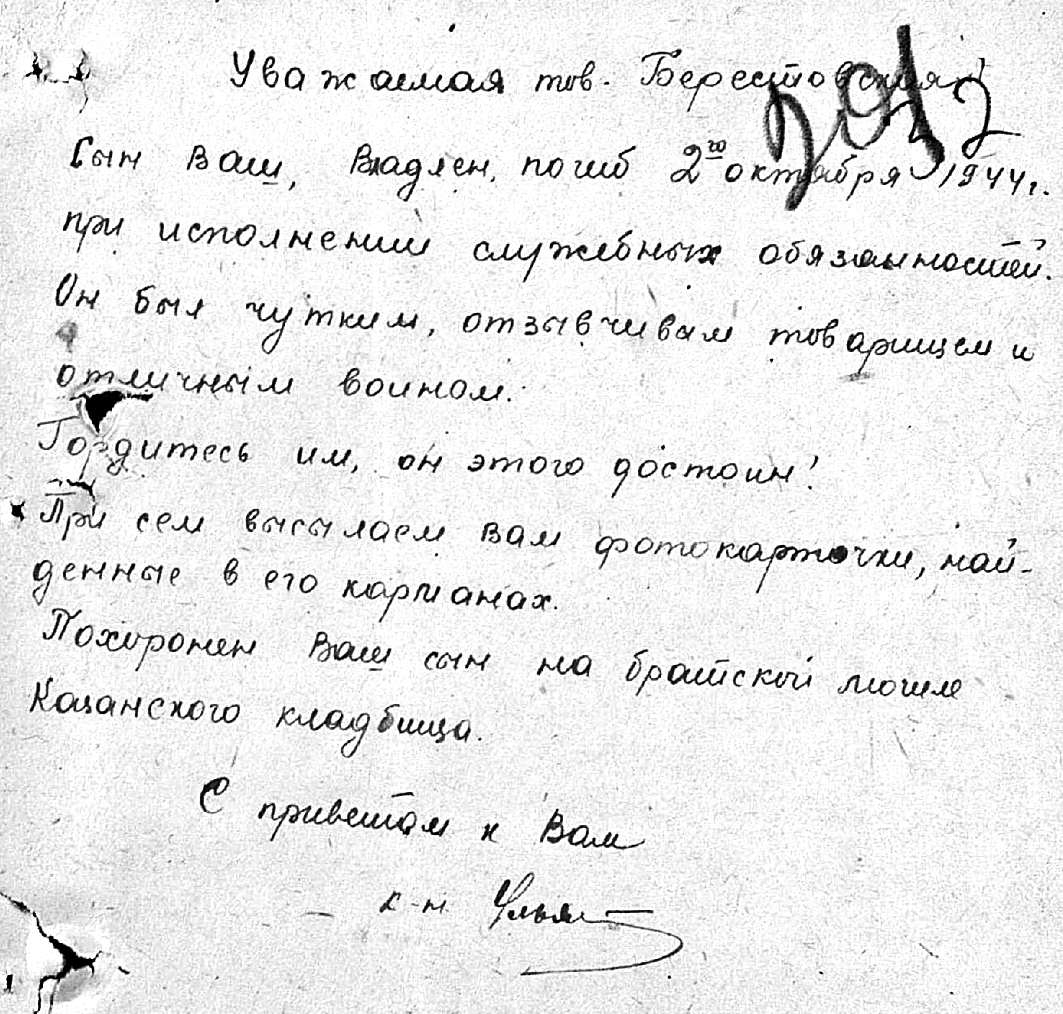 Уважаемая тов. Берестовская!
Сын Ваш, Владлен, погиб 2го октября 1944 г.
при исполнении служебных обязанностей.
Он был чутким, отзывчивым товарищем и
отличным воином.
Гордитесь им, он этого достоин!
При сем высылаем Вам фотокарточки, най-
денные в его карманах.
Похоронен Ваш сын на братской могиле
Казанского кладбища.
С приветом к Вам
к-н